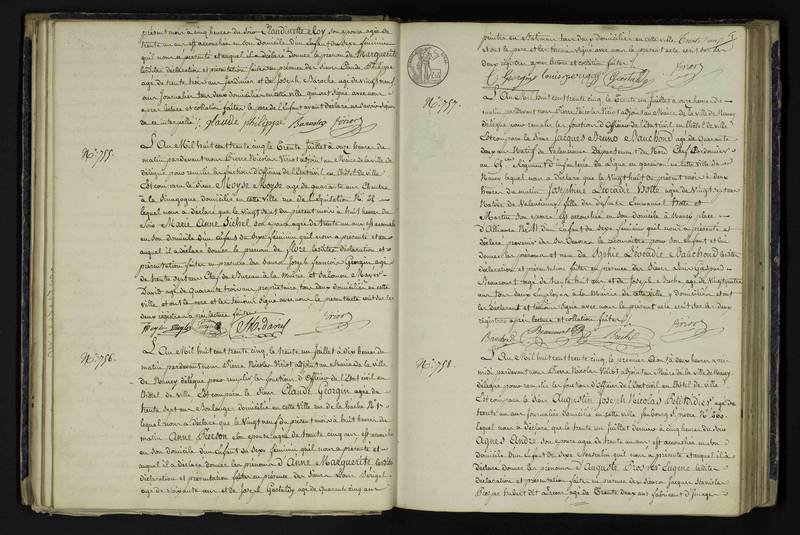 présent mois à cinq heures du soir Claudinette Eloy son épouse agée de
trente un ans est accouchée en son domicile d'un Enfant du Sexe féminin
qu'il nous a présenté et auquel il a déclaré donner le prénom de Marguerite
lesdites déclaration et présentation faites en présence des Sieurs Claude Philippe
agé de trente trois ans Jardinier et de Joseph Baroche agé de vingt neuf
ans Journalier tous deux domiciliés en cette ville qui ont signé avec nous
après lecture et collation faites, le père de l'Enfant ayant déclaré ne savoir signer
glaude philippe
N.° 755.
L'An Mil huit cent trente cinq le Trente Juillet à onze heures du
matin, pardevant nous Pierre Nicolas Viriot adjoint au Maire de la ville de
délégué pour remplir les fonctions d'Officier de l'Etat civil en l'hôtel de ville
Est comparu le Sieur Moyse Moyse agé de quarante ans Chantre
à la Sinagogue domicilié en cette ville rue de l'Equitation N.°
lequel nous a déclaré que le vingt sept du présent mois à huit heures du
soir Marie Anne Sichel son épouse agée de trente un ans est accouchée
en son domicile d'un Enfant du Sexe féminin qu'il nous a présenté et
auquel il a déclaré donner le prénom de Flore lesdites déclaration et
présentation faites en présence des Sieurs Joseph François Georgin agé
de trente sept ans Chef de Bureau à la Mairie et Salomon Mayer
David agé de Quarante trois ans propriétaire, tous deux domiciliés en cette
ville et ont le père et les témoins signé avec nous le présent acte écrit sur les
deux régistres après lecture faites
M. David
N.° 756.
L'An Mil huit cent trente cinq, le trente un Juillet à dix heures du
matin, pardevant nous Pierre Nicolas Viriot adjoint au Maire de la ville
de Nancy délégué pour remplir les fonctions d'Officier de l'Etat civil en
l'hôtel de ville Est comparu le Sieur Claude Georgin agé de
trente sept ans Boulanger domicilié en cette ville rue de la hache N.° 17
lequel nous a déclaré que le Vingt neuf du présent mois à huit heures du
matin Anne Pierson son épouse agée de trente cinq ans est accouchée
en son domicile d'un Enfant du Sexe féminin qu'il nous a présenté et
auquel il a déclaré donner les prénoms d'Anne Marguerite lesdites
déclaration et présentation faites en présence des Sieurs Louis
agé de soixante ans et de Joseph Gastaldy agé de Quarante cinq ans
peintre en Bâtiment tous deux domiciliés en cette ville
et ont le père et les témoins signé avec nous le présent acte écrit sur les
deux régistres après lecture et collation faites
C. Georgin
N.° 757.
L'An Mil huit cent trente cinq, le Trente un Juillet à onze heures du
matin, pardevant nous Pierre Nicolas Viriot adjoint au Maire de la ville de Nancy
délégué pour remplir les fonctions d'Officier de l'Etat civil en l'hôtel de ville
Est comparu le Sieur Jacques Bruno Bauchond agé de Quarante
deux ans Natif de Valenciennes Département du Nord Chef Cordonnier
au Régiment d'Infanterie de Ligne en garnison en cette ville de
Nancy lequel nous a déclaré que le Vingt huit du présent mois à deux
heures du matin Josephine Léocadie Hotte agée de Vingt sept ans
Native de Valenciennes fille des défunts Emmanuel Hotte et
Martin son épouse est accouchée en son domicile à Nancy place
d'Alliance N.° 11 d'un Enfant du Sexe féminin qu'il nous a présenté, et
déclaré provenir de ses Œuvres, le reconnaître pour son Enfant et lui
donner les prénoms et nom de Sophie Léocadie Bauchond lesdites
déclaration et présentation faites en présence des Sieurs Louis Gaspard
Beaumont agé de trente huit ans et de Joseph Bache agé de Vingt quatre
ans tous deux Employés à la Mairie de cette ville y domiciliés et ont
les Déclarant et témoins signé avec nous le présent acte écrit sur les deux
régistres après lecture et collation faites
Beaumont
N.° 758.
L'An Mil huit cent trente cinq, le premier Aout à deux heures après
midi pardevant nous Pierre Nicolas Viriot adjoint au Maire de la ville de Nancy
délégué pour remplir les fonctions d'Officier de l'Etat civil en l'hôtel de ville
Est comparu le Sieur Augustin Joseph Nicolas Petitdidier agé de
trente un ans Journalier domicilié en cette ville faubourg St. Pierre N.°
lequel nous a déclaré que le trente un Juillet dernier à cinq heures du soir
Agnès André son épouse agée de trente un ans est accouchée en son
domicile d'un Enfant du sexe Masculin qu'il nous a présenté et auquel il a
déclaré donner les prénoms d'Auguste Prosper Eugène lesdites
déclaration et présentation faites en présence des Sieurs Jacques Stanislas
Prosper hubert dit Lacour agé de Trente deux ans fabricant d'Images